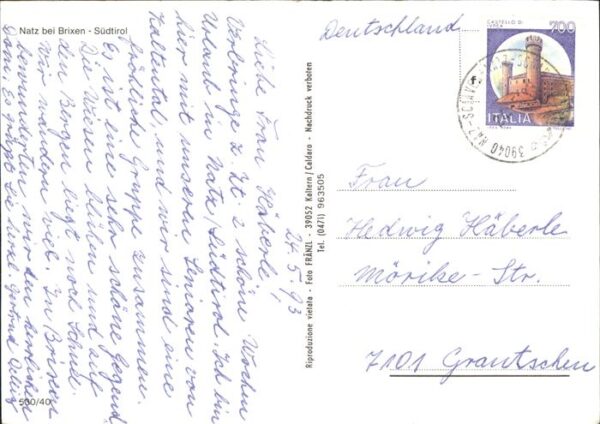 Natz bei Brixen - Südtirol
24.5.93
Liebe Frau Häberle!
Verbringe z. Zt. 2 schöne Wochen
Urlaub in Natz/Südtirol. Ich bin
hier mit unseren Senioren von
Kaltental, und wir sind eine
fröhliche Gruppe zusammen.
Es ist eine sehr schöne Gegend,
Die Wiesen blühen und auf
den Bergen liegt noch Schnee.
Wir wandern viel. In Brixen
bewunderten wir den herrlichen
Dom. Es grüßt Sie Ihre Gertrud
530/40
Reproduzione vietata - Foto FRÄNZL - 39052 Kaltern/Caldaro - Nachdruck verboten
Tel. (0471) 963505
Deutschland
CASTELLO DI
IVREA
700
ITALIA
39040 NAZ-SCIAVES
Frau
Hedwig Häberle
Mörike-Str.
7101 Grantschen